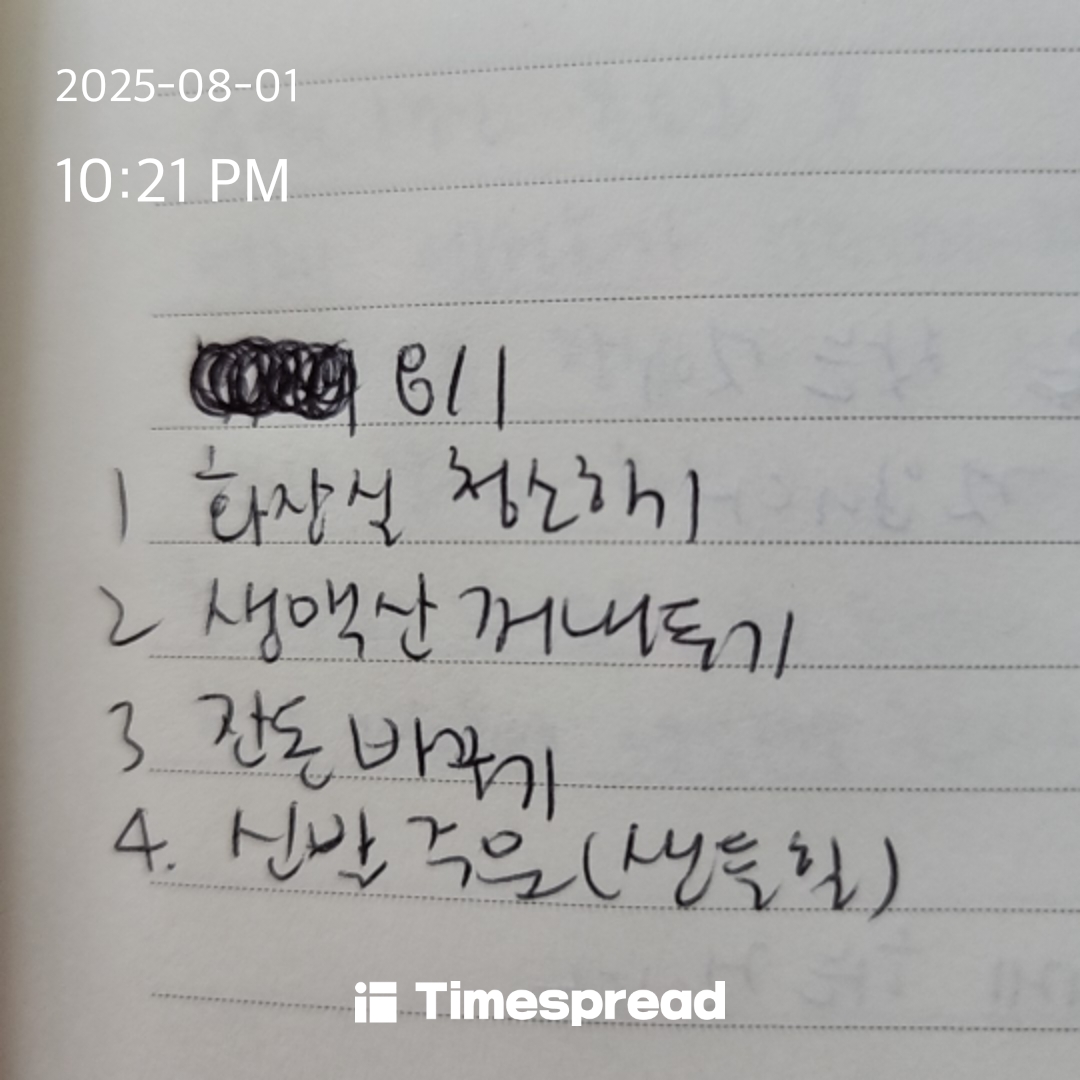 2025-08-01
10:21 PM
8/1
1 화장실 청소하기
2 생맥산 꺼내두기
3 잔돈 바꾸기
4. 신발 주문 (샌들힐)
Timespread